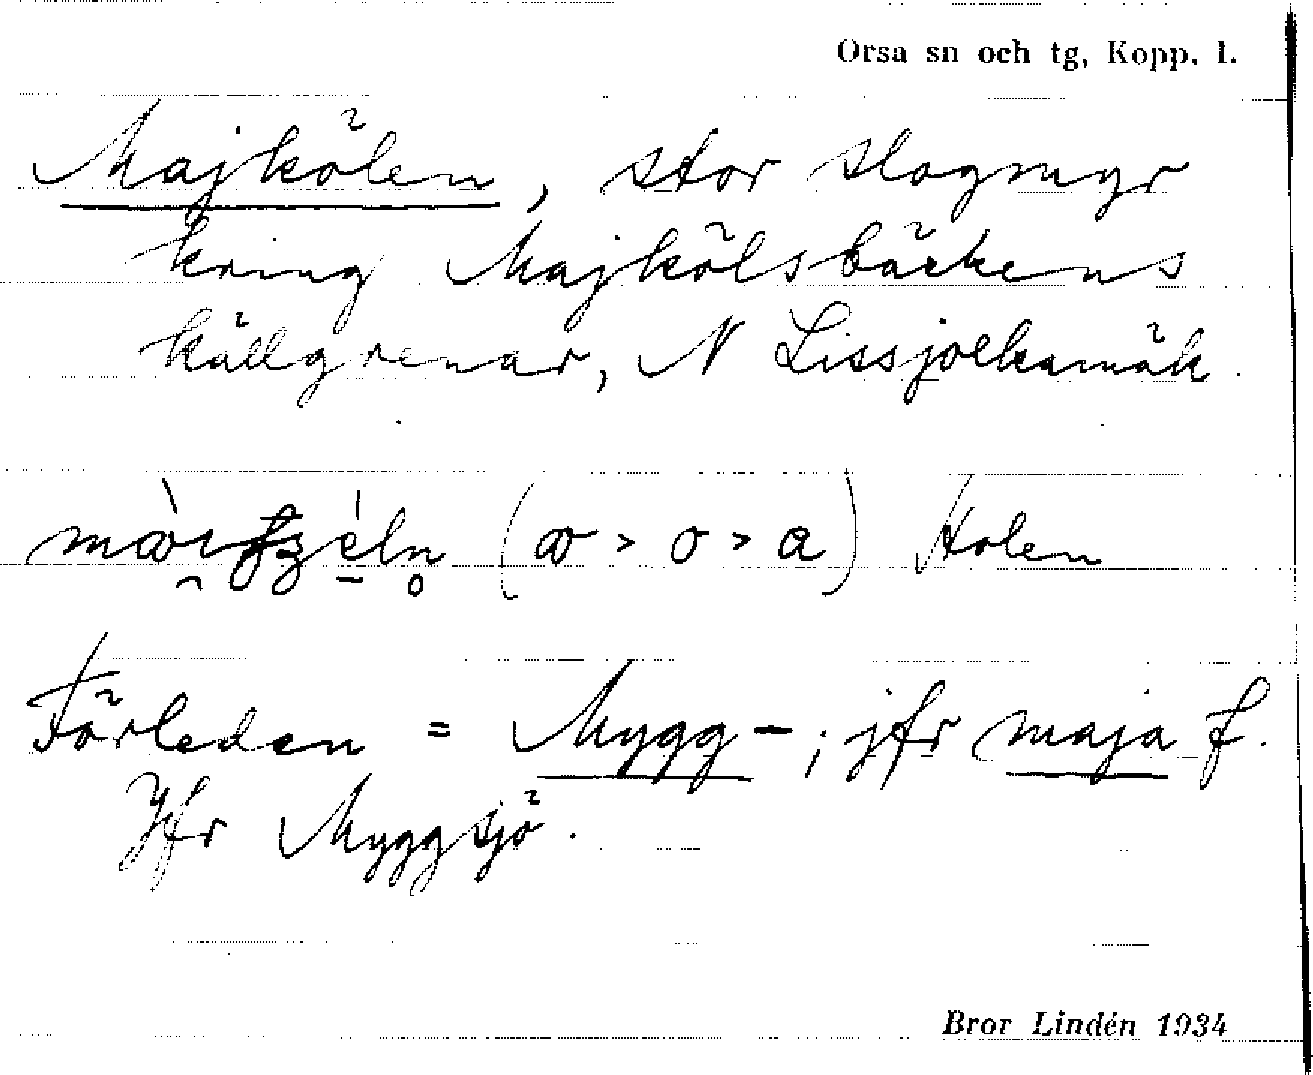 Orsa sn och tg, Kopp. l.
Majkölen, stor slogmyr
kring Majkölsbäckens
källgrenar, N Lissjoelkamäk.
(ꭢ > o > a) Holen
Förleden = Mygg-; jfr maja f.
Jfr Myggsjö.
Bror Lindén 1934